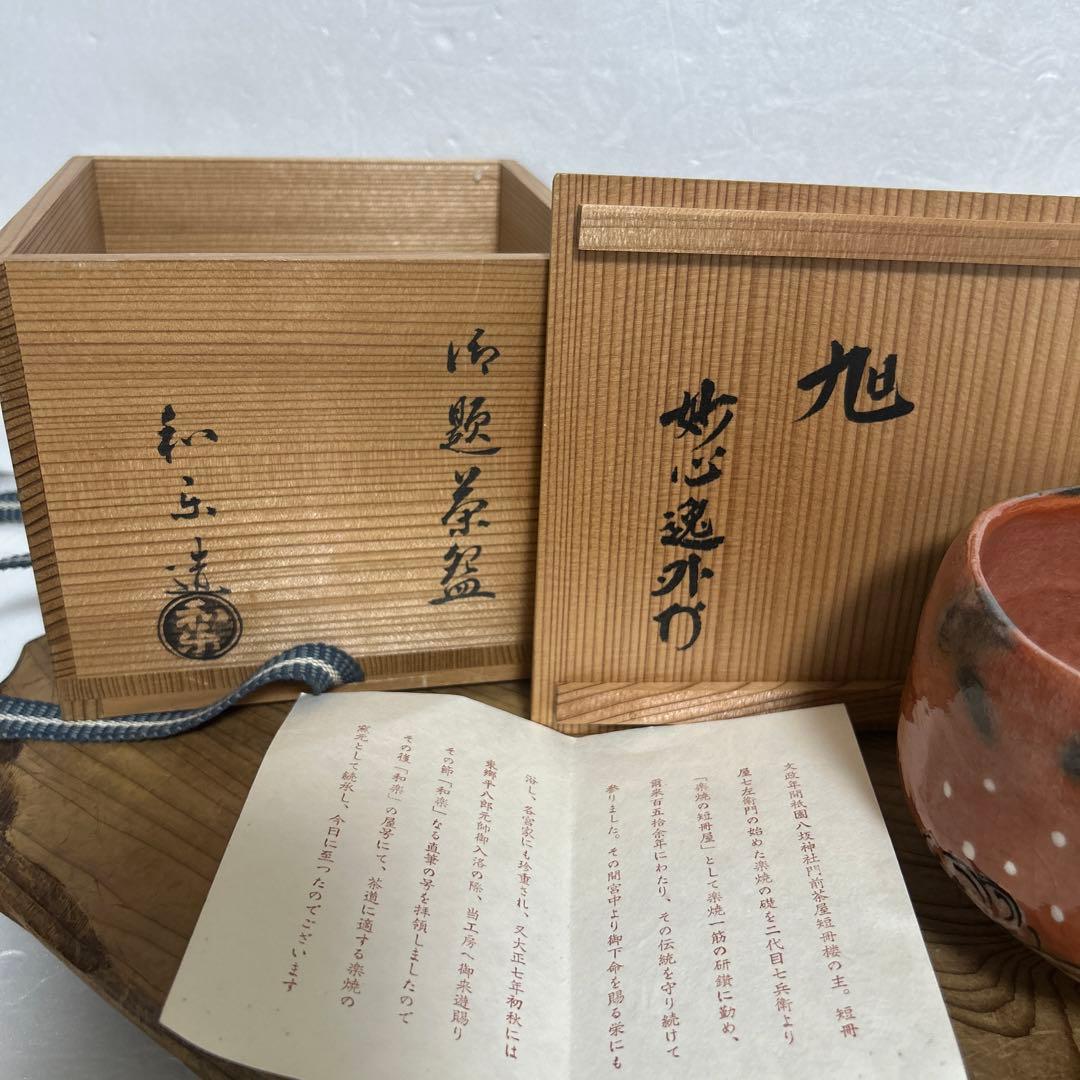 御題茶盌
和楽造
和楽
旭
妙心逸外
文政年開祇園八坂神社門前茶屋短冊楼の主。短冊
屋七左衛門の始めた楽焼の礎を二代目七兵衛より
「楽焼の短冊屋」として楽焼一筋の研鑽に勤め、
爾来百五拾余年にわたり、その伝統を守り続けて
参りました。その間宮中より御下命を賜る栄にも
浴し、各宮家にも珍重され、又大正七年初秋には
東郷平八郎元帥御入洛の際、当工房へ御来遊賜り
その節「和楽」なる直筆の号を拝領しましたので
その後「和楽」の屋号にて、茶道に適する楽焼の
窯元として続承し、今日に至つたのでございます